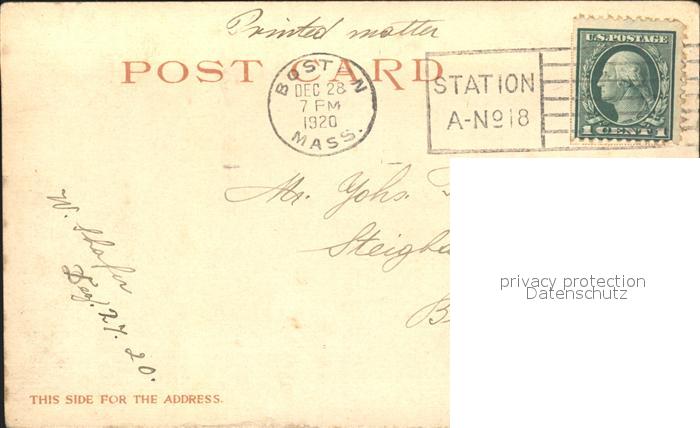 Printed matter
POST CARD
BOSTON
DEC 28
7 PM
1920
MASS.
STATION
A-No18
U.S. POSTAGE
1 CENT 1
Mr. Yohs.
W. Shafer
Dez. 27. 20.
privacy protection
Datenschutz
THIS SIDE FOR THE ADDRESS.